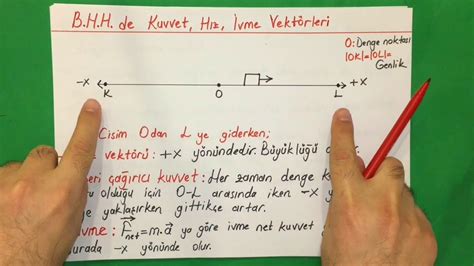 B.H.H. de Kuvvet, Hız, İvme Vektörleri
O: Denge noktası
|OK|=|OL|=
Genlik
-x K O L +x
Cisim O dan L ye giderken;
vektörü: +x yönündedir. Büyüklüğü
çağırıcı kuvvet: Her zaman denge
olduğu için O-L arasında iken -x
yaklaşırken gittikçe artar.
İvme: Fnet=m.a ya göre ivme net kuvvet
burada -x yönünde olur.